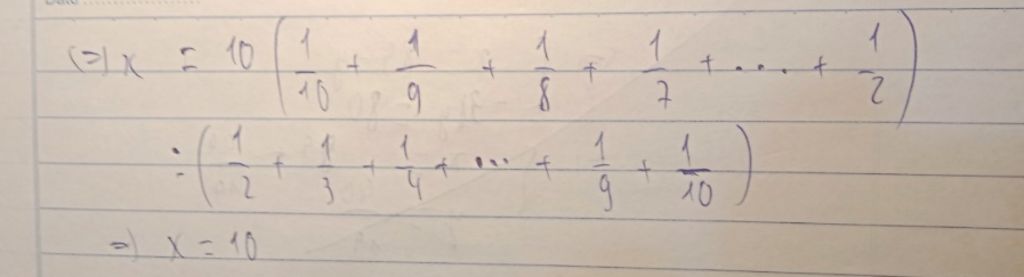 (=) x = 10 (1/10 + 1/9 + 1/8 + 1/7 + ... + 1/2)
: (1/2 + 1/3 + 1/4 + ... + 1/9 + 1/10)
=) x = 10